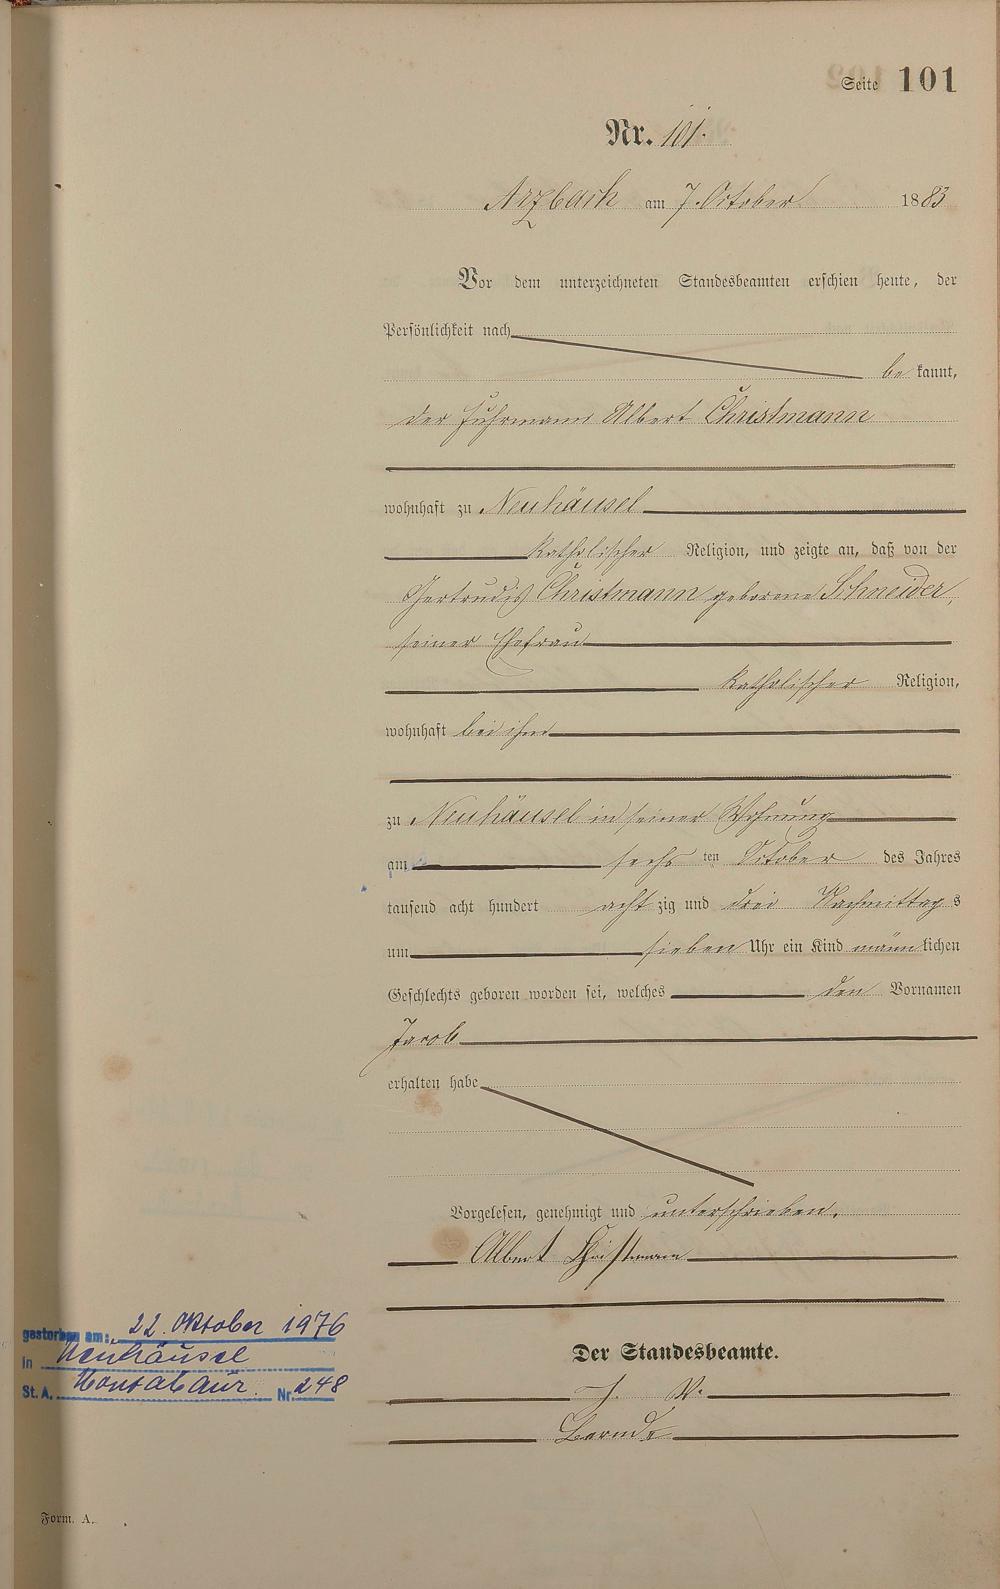 Seite 101
Nr. 101.
Arzbach am 7. October 1883
Vor dem unterzeichneten Standesbeamten erschien heute, der
Persönlichkeit nach
be kannt,
der Fuhrmann Albert Christmann
wohnhaft zu Neuhäusel
katholischer Religion, und zeigte an, daß von der
Gertrudis Christmann geborene Schneider,
seiner Ehefrau
katholischer Religion,
wohnhaft bei ihm
zu Neuhäusel in seiner Wohnung
am sechs ten October des Jahres
tausend acht hundert acht zig und drei Nachmittag s
um sieben Uhr ein Kind männ lichen
Geschlechts geboren worden sei, welches den Vornamen
Jacob
erhalten habe
Vorgelesen, genehmigt und unterschrieben.
Albert Christmann
gestorben am: 22. Oktober 1976
in Neuhäusel
St. A. Montabaur Nr. 248
Der Standesbeamte.
J. V.
Form. A.